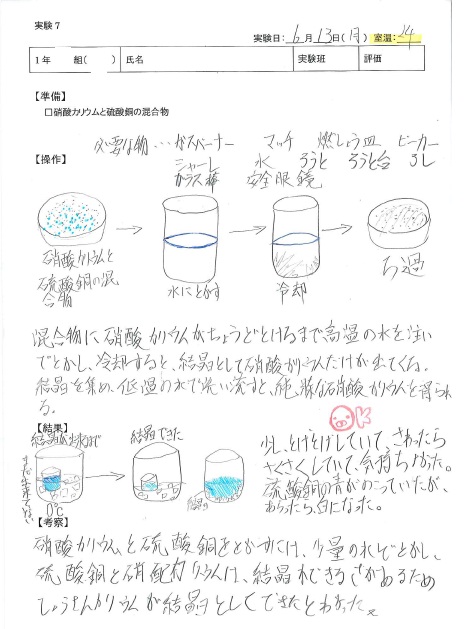 実験7
実験日: 6月13日(月) 室温: 24
1年 組( ) 氏名 実験班 評価
【準備】
□硝酸カリウムと硫酸銅の混合物
必要な物…ガスバーナー マッチ 燃しょう皿 ビーカー
シャーレ 水 ろうと ろうと台 ろし
【操作】
ガラス棒 安全眼鏡
硝酸カリウムと
硫酸銅の混
合物
水にとかす
冷却
ろ過
混合物に硝酸カリウムがちょうどとけるまで高温の水を注い
でとかし、冷却すると、結晶として硝酸カリウムだけが出てくる。
結晶を集め、低温の水で洗い流すと、純粋な硝酸カリウムを得られ
る。
OK
【結果】
結晶できた
0℃
少し、とげとげしていて、さわったら
さくさくしていて、気持ちよかった。
硫酸銅の青がのこっていたが、
あらったら、白になった。
【考察】
硝酸カリウムと硫酸銅をとかすには、少量の水でとかし、
硫酸銅と硝酸カリウムは、結晶ができるさがあるため
しょうさんカリウムが結晶としてできたとわかった。